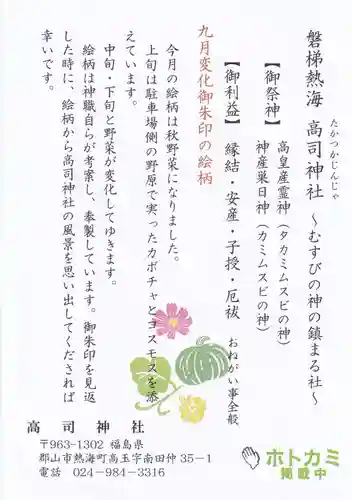 磐梯熱海 高司神社 ～むすびの神の鎮まる社～
たかつかじんじゃ
【御祭神】 高皇産霊神（タカミムスビの神）
神産巣日神（カミムスビの神）
【御利益】 縁結・安産・子授・厄祓 おねがい事全般
九月変化御朱印の絵柄
今月の絵柄は秋野菜になりました。
上旬は駐車場側の野原で実ったカボチャとコスモスを添
えています。
中旬・下旬と野菜が変化してゆきます。
絵柄は神職自らが考案し、奉製しています。御朱印を見返
した時に、絵柄から高司神社の風景を思い出してくだされば
幸いです。
高司神社
〒963-1302 福島県
郡山市熱海町高玉字南田仲35－1
電話 024-984-3316
ホトカミ
掲載中